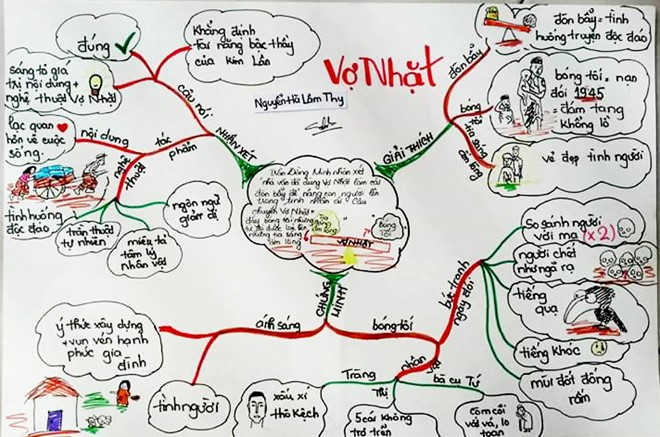 VỢ NHẶT
Nguyễn Hồ Lâm Thy
NHẬN XÉT
câu nói
đúng
Khẳng định
tài năng bậc thầy
của Kim Lân
sáng tỏ giá
trị nội dung +
nghệ thuật Vợ Nhặt
tác
phẩm
nội dung
lạc quan
hơn về cuộc
sống
nghệ
thuật
tình huống
độc đáo
trần thuật
tự nhiên
miêu tả
tâm lý
nhân vật
ngôn ngữ
giản dị
GIẢI THÍCH
đòn bẩy
đòn bẩy = tình
huống truyện độc đáo
bóng tối
bóng tối = nạn
đói 1945
= đám tang
khổng lồ
tia sáng
ấm lòng
vẻ đẹp tình người
Trần Đồng Minh nhận xét
nhà văn đã dùng Vợ Nhặt làm cái
đòn bẩy để nâng con người lên
trong tình nhân ái. Câu
chuyện Vợ Nhặt
đầy bóng tối nhưng
từ đó
những tia sáng
ấm lòng
VỢ NHẶT
Bóng
tối
CHỨNG
MINH
ánh sáng
ý thức xây dựng
+ vun vén hạnh
phúc gia
đình
tình người
bóng tối
bức tranh
ngày đói
So sánh người
với ma (x2)
người chết
như ngả rạ
tiếng
quạ
tiếng khóc
mùi đốt đống
rấm
nhân
vật
Tràng
xấu xí
thô kệch
Thị
5 cái không
trơ trẽn
bà cụ Tứ
Còm cõi
vất vả, lo toan